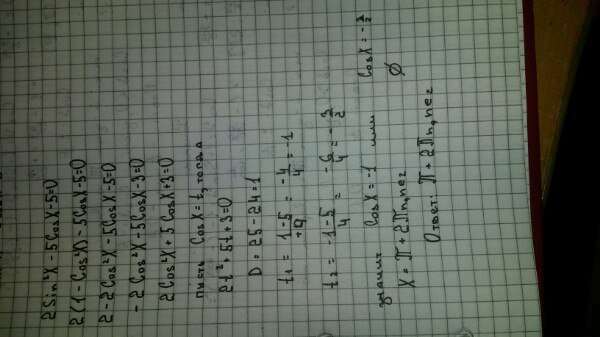 2Sin²X - 5CosX - 5 = 0
2(1 - Cos²X) - 5CosX - 5 = 0
2 - 2Cos²X - 5CosX - 5 = 0
- 2Cos²X - 5CosX - 3 = 0
2Cos²X + 5CosX + 3 = 0
пусть CosX = t, тогда
2t² + 5t + 3 = 0
D = 25 - 24 = 1
t₁ = 1-5/4 = -4/4 = -1
t₂ = -1-5/4 = -6/4 = -3/2
значит CosX = -1 или CosX = -3/2
X = π + 2πn, n∈z ∅
Ответ: π + 2πn, n∈z